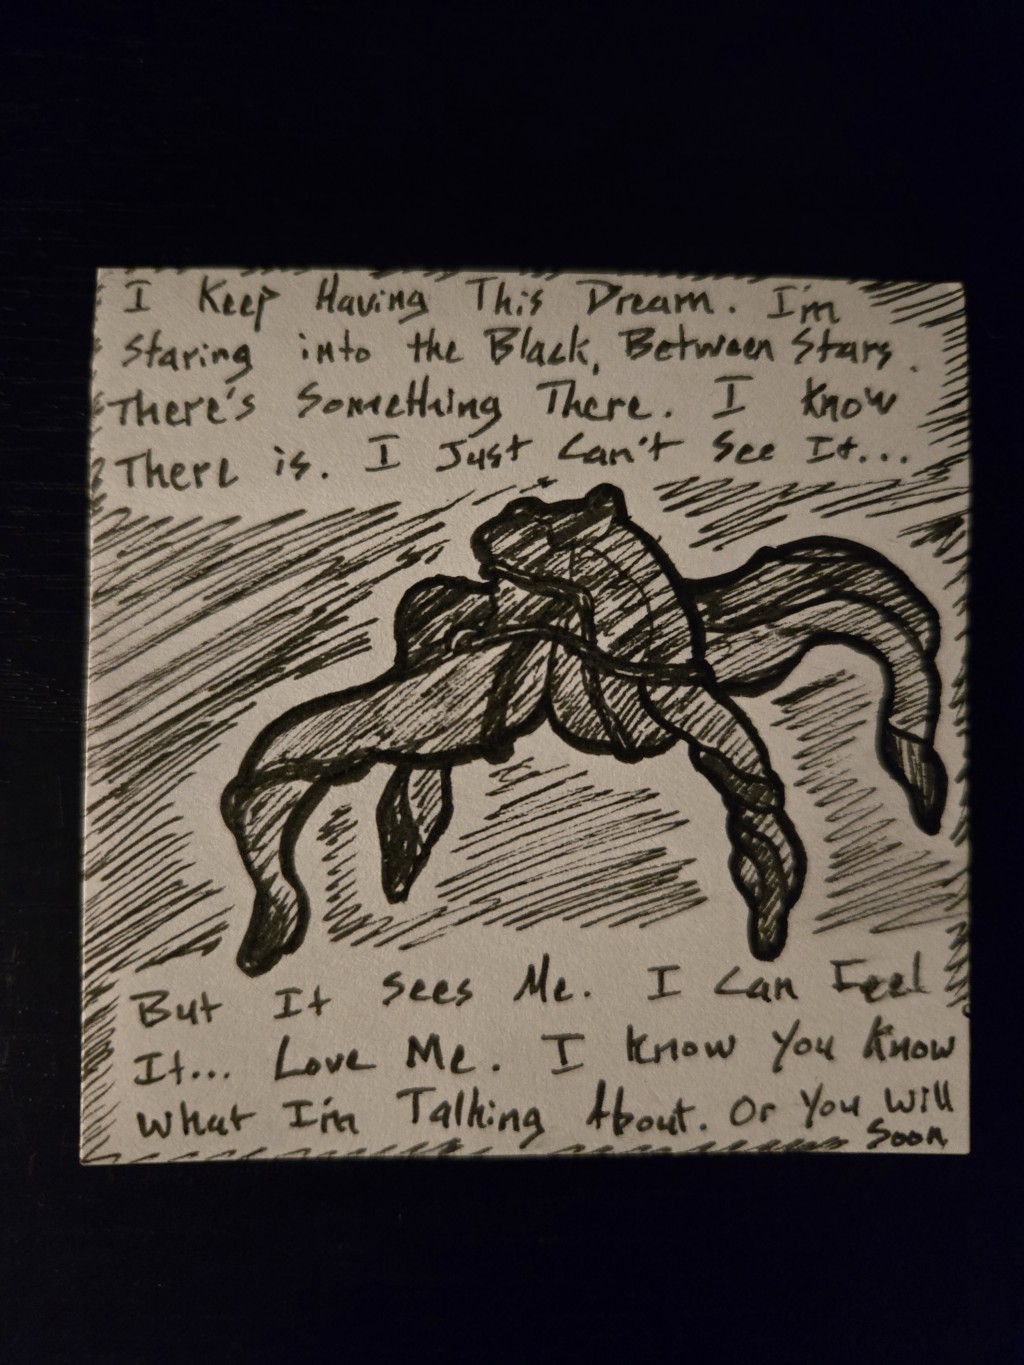 I Keep Having This Dream. I'm
Staring into the Black, Between Stars.
There's Something There. I Know
There is. I Just Can't See It...
But It Sees Me. I Can Feel
It... Love Me. I Know You Know
What I'm Talking About. Or You Will
Soon.